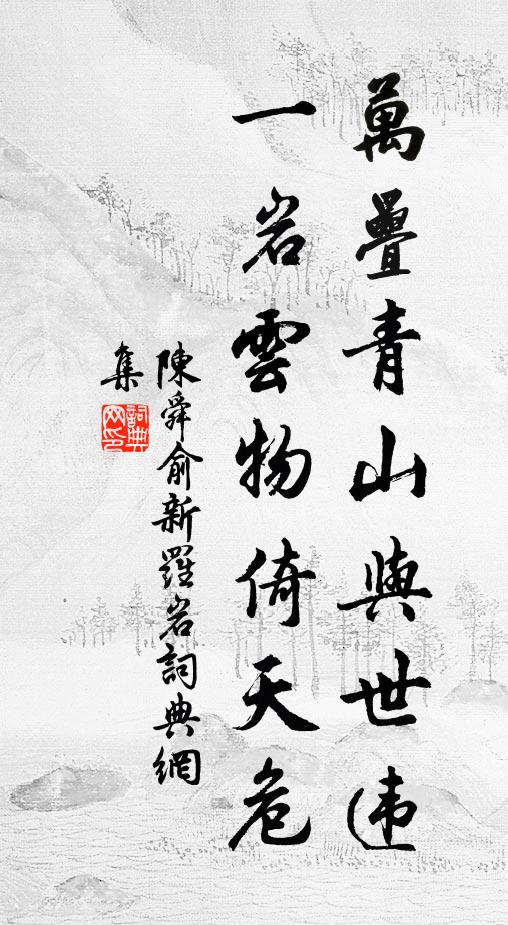 萬疊青山與世违
一岩雲物倚天危
陳舜俞新羅岩詞典網
集
詞典
网印